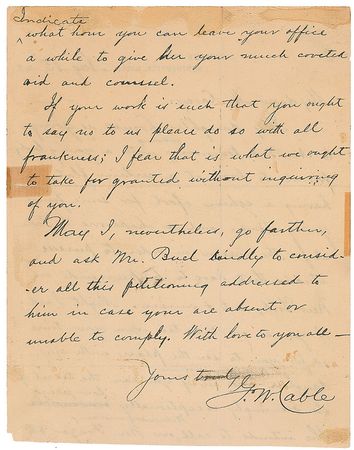 Indicate
^ what hour you can leave your office
a while to give her your much coveted
aid and counsel.
If your work is such that you ought
to say no to us please do so with all
frankness; I fear that is what we ought
to take for granted without inquiring
of you.
May I, nevertheless, go farther,
and ask Mr. Buel kindly to consid-
er all this petitioning addressed to
him in case your are absent or
unable to comply. With love to you all—
Yours
G. W. Cable